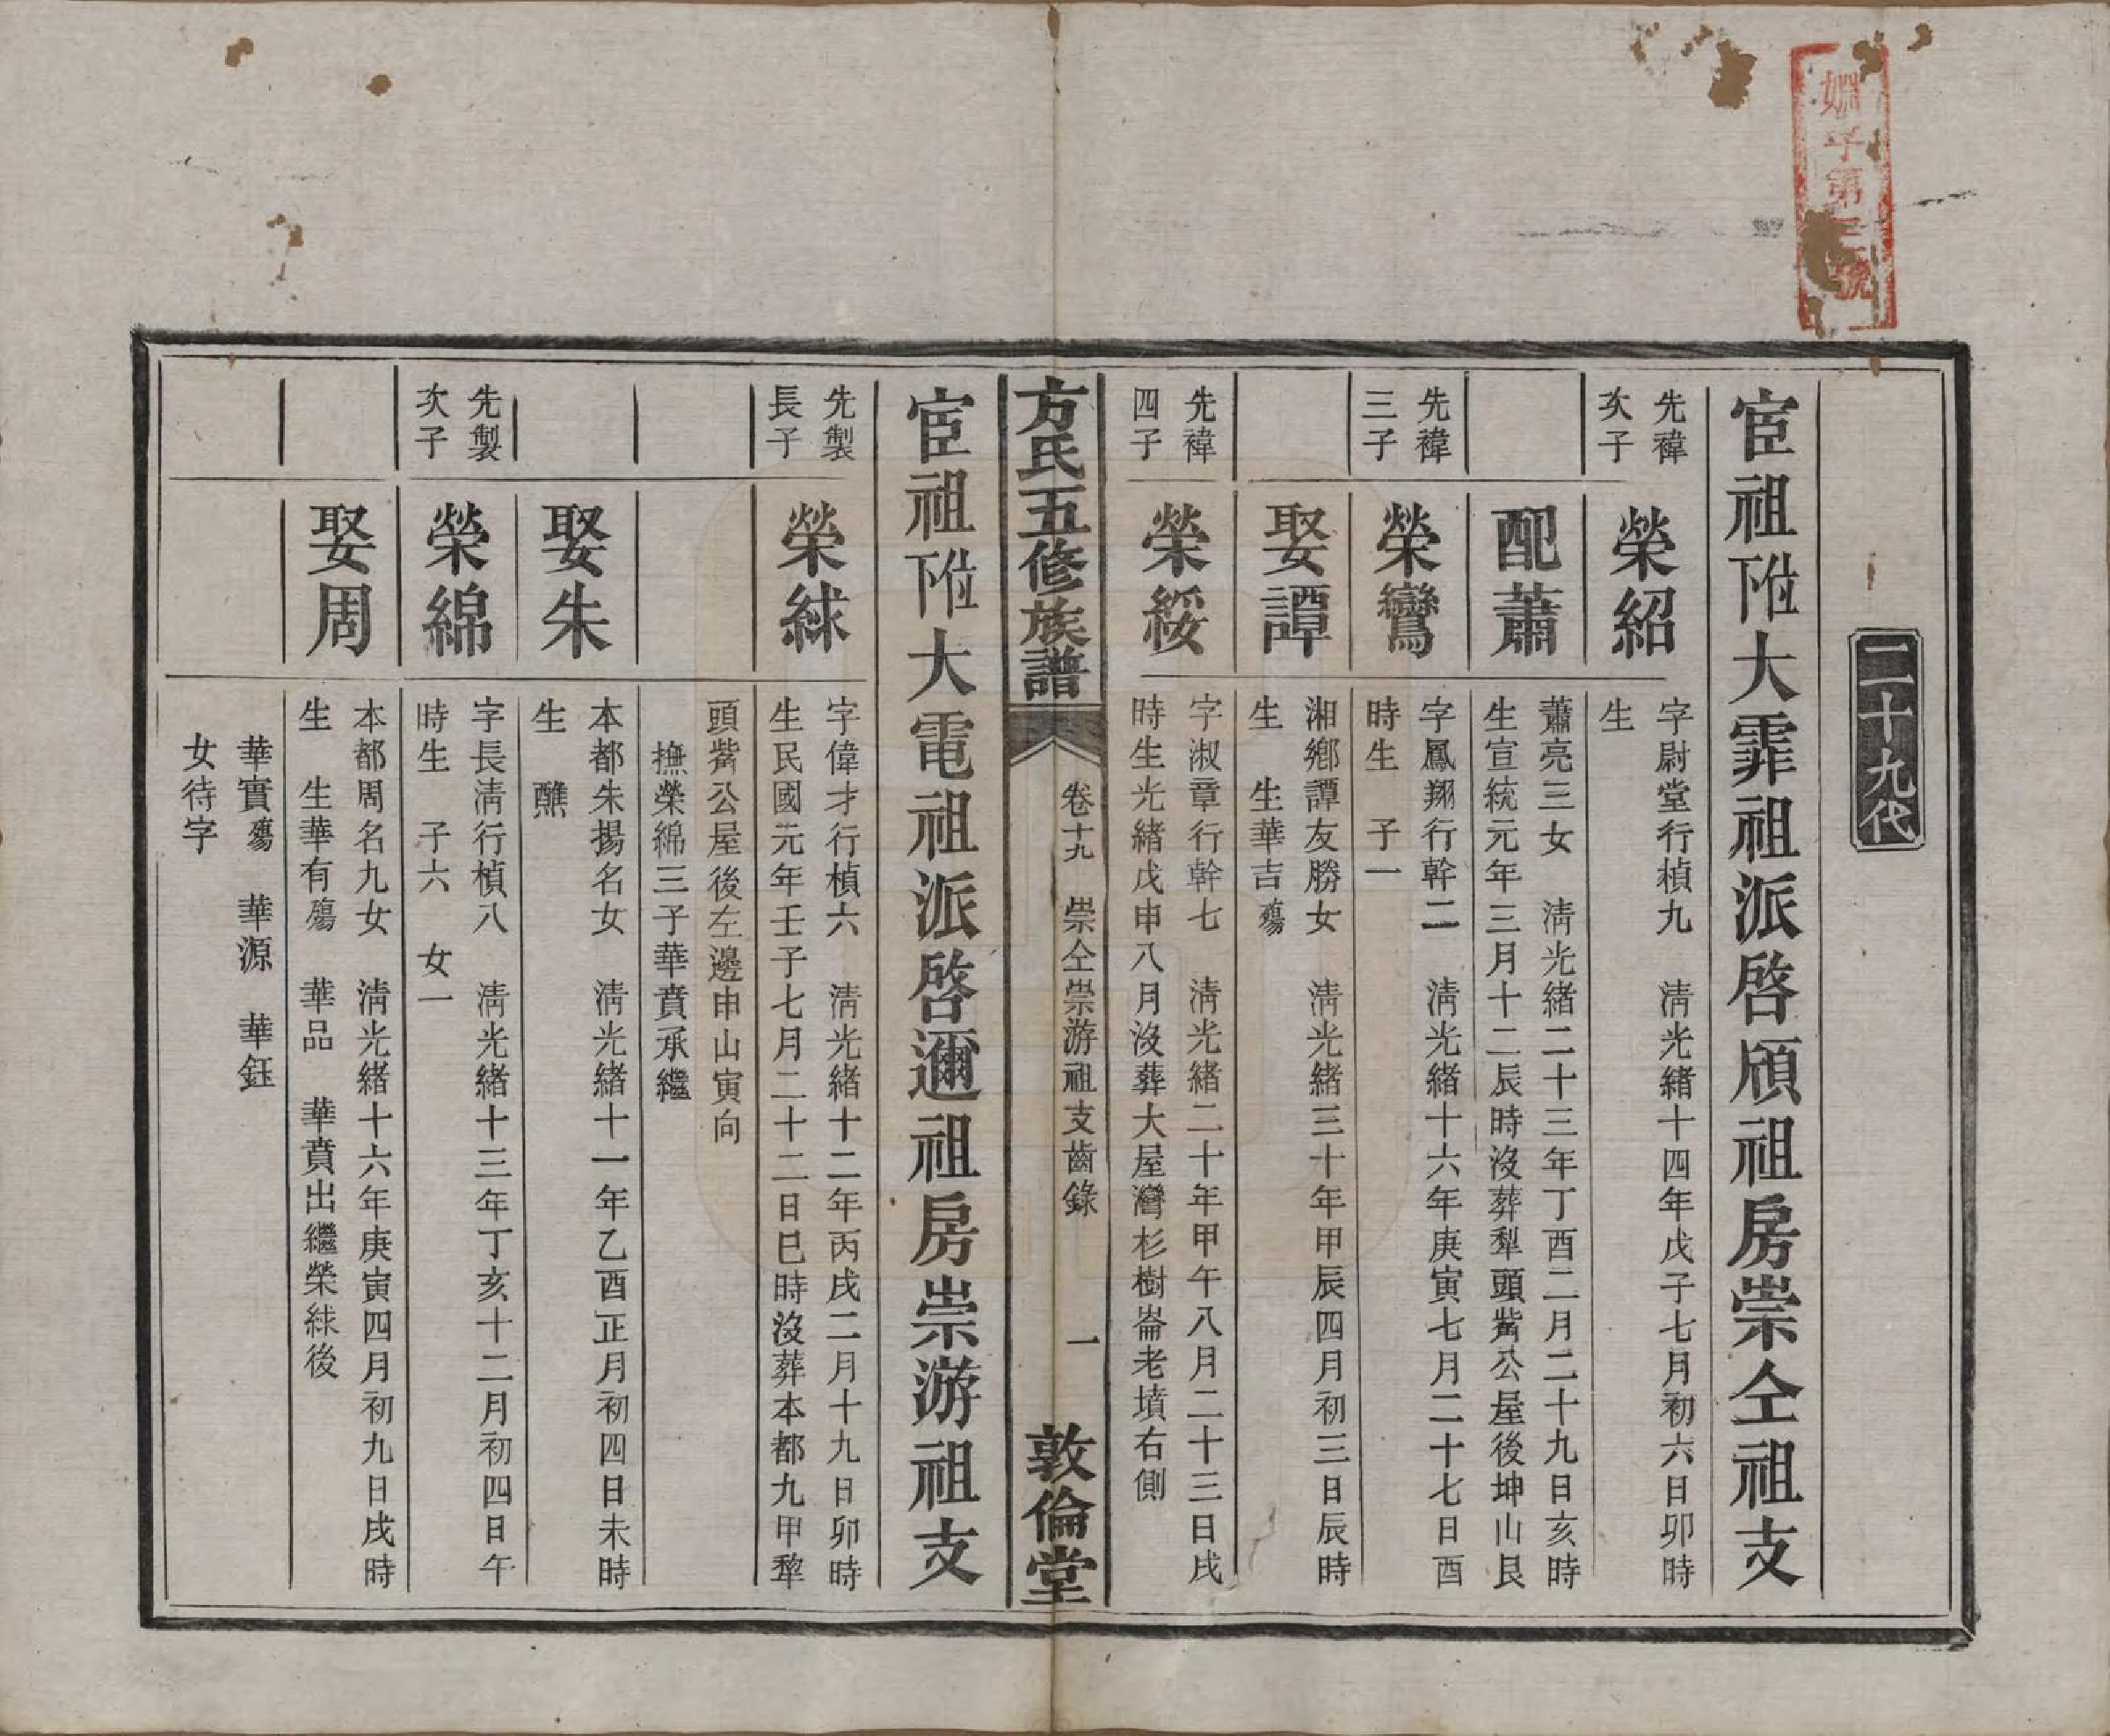 二十九代
宦祖附大霏祖派啓頎祖房崇仝祖支
先禕
次子
榮紹
字尉堂行楨九　清光緒十四年戊子七月初六日卯時
生
配蕭
蕭亮三女　清光緒二十三年丁酉二月二十九日亥時
生宣統元年三月十二辰時沒葬犁頭觜公屋後坤山艮
先禕
三子
榮鸞
字鳳翔行幹二　清光緒十六年庚寅七月二十七日酉
時生　子一
娶譚
湘鄉譚友勝女　清光緒三十年甲辰四月初三日辰時
生　生華吉殤
先禕
四子
榮綏
字淑章行幹七　清光緒二十年甲午八月二十三日戌
時生光緒戊申八月沒葬大屋灣杉樹崙老墳右側
方氏五修族譜
卷十九　崇仝崇游祖支齒錄　一
敦倫堂
宦祖附大電祖派啓邇祖房崇游祖支
先製
長子
榮絿
字偉才行楨六　清光緒十二年丙戌二月十九日卯時
生民國元年壬子七月二十二日巳時沒葬本都九甲犂
頭觜公屋後左邊申山寅向
撫榮綿三子華賁承繼
娶朱
本都朱揚名女　清光緒十一年乙酉正月初四日未時
生　醮
先製
次子
榮綿
字長清行楨八　清光緒十三年丁亥十二月初四日午
時生　子六　女一
娶周
本都周名九女　清光緒十六年庚寅四月初九日戌時
生　生華有殤　華品　華賁出繼榮絿後
華實殤　華源　華鈺
女待字